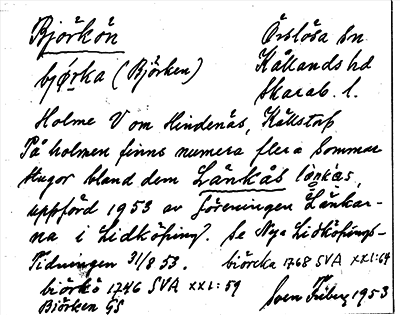 Björkön Örslösa sn
bjørka (Björken) Kållands hd
Skarab. l.
Holme V om Hindenäs, Kållstap
På holmen finns numera flera sommar
stugor bland dem Länkås lånkås,
uppförd 1953 av föreningen Länkar-
na i Lidköping. Se Nya Lidköpings-
Tidningen 31/8 53. biörcka 1768 SVA XXI:64
biörkö 1746 SVA XXI:59
Björken GS Sven Friberg 1953